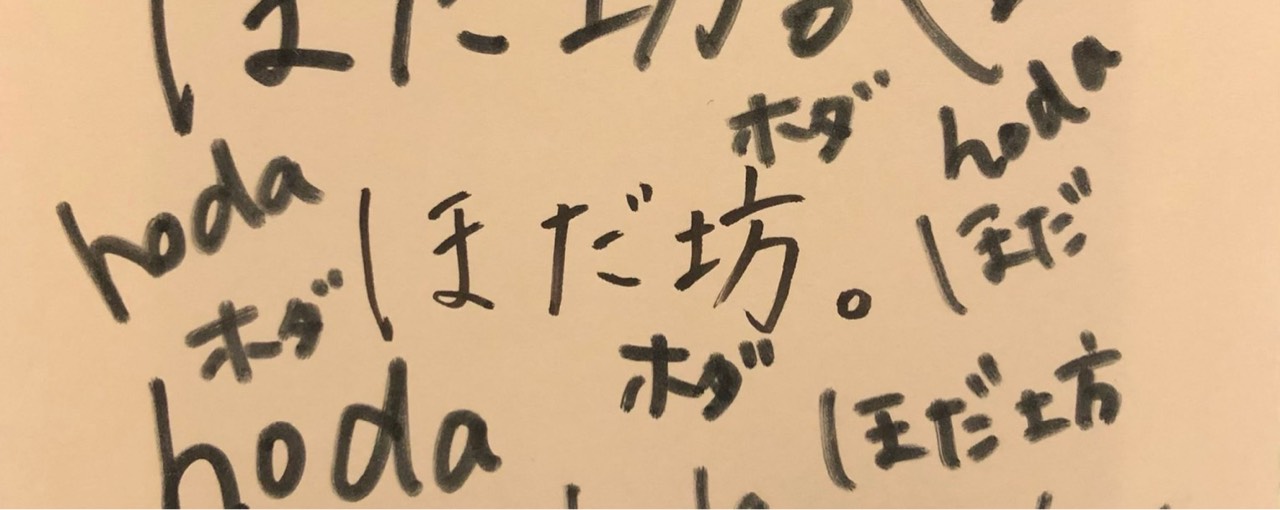 ほだ坊。
ホダ
hoda
hoda
ほだ坊。
ほだ
ホダ
ホダ
ほだ坊
hoda